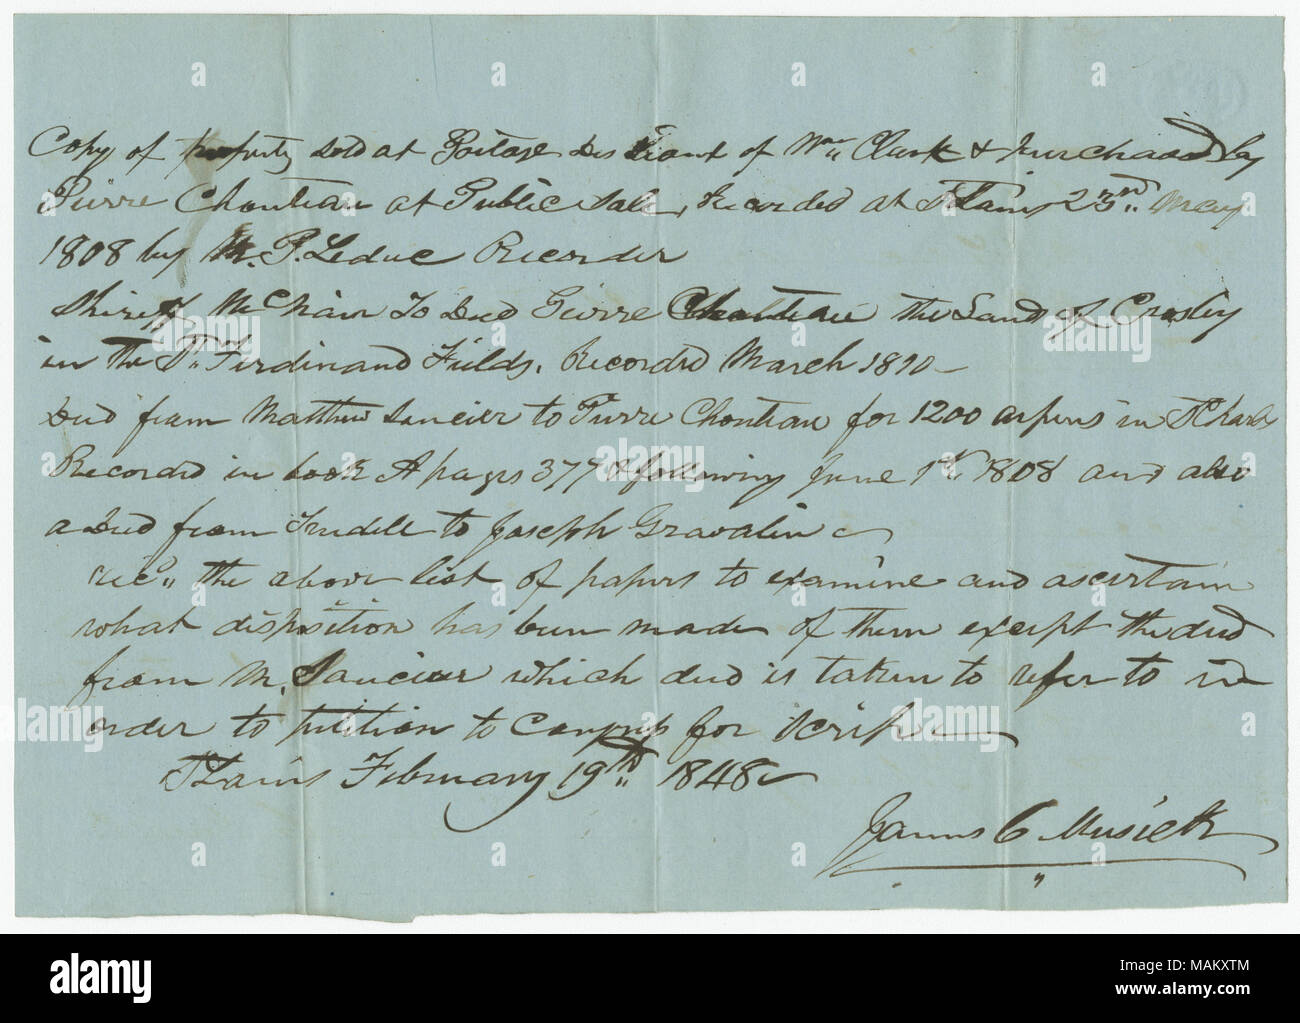 Copy of property sold at Portage Des Sioux of Wm. Clark & purchased by
Pierre Chouteau at Public Sale, Recorded at St Louis 23rd. May
1808 by M. P. Leduc Recorder
Shireff McNair To Deed Pierre Chouteau the Land of Crosby
in the St. Ferdinand Fields. Recorded March 1810 —
Deed from Matthew Saucier to Pierre Chouteau for 1200 arpens in St Charles
Recorded in book A pages 377 & following June 1st. 1808 and also
a Deed from Trudell to Joseph Gravalin
Recd. the above list of papers to examine and ascertain
what disposition has been made of them except the deed
from M. Saucier which deed is taken to refer to in
order to petition to Congress for Scrip
St Louis February 19th. 1848
James C Musick
alamy
a
alamy
a
MAKXTM
www.alamy.com